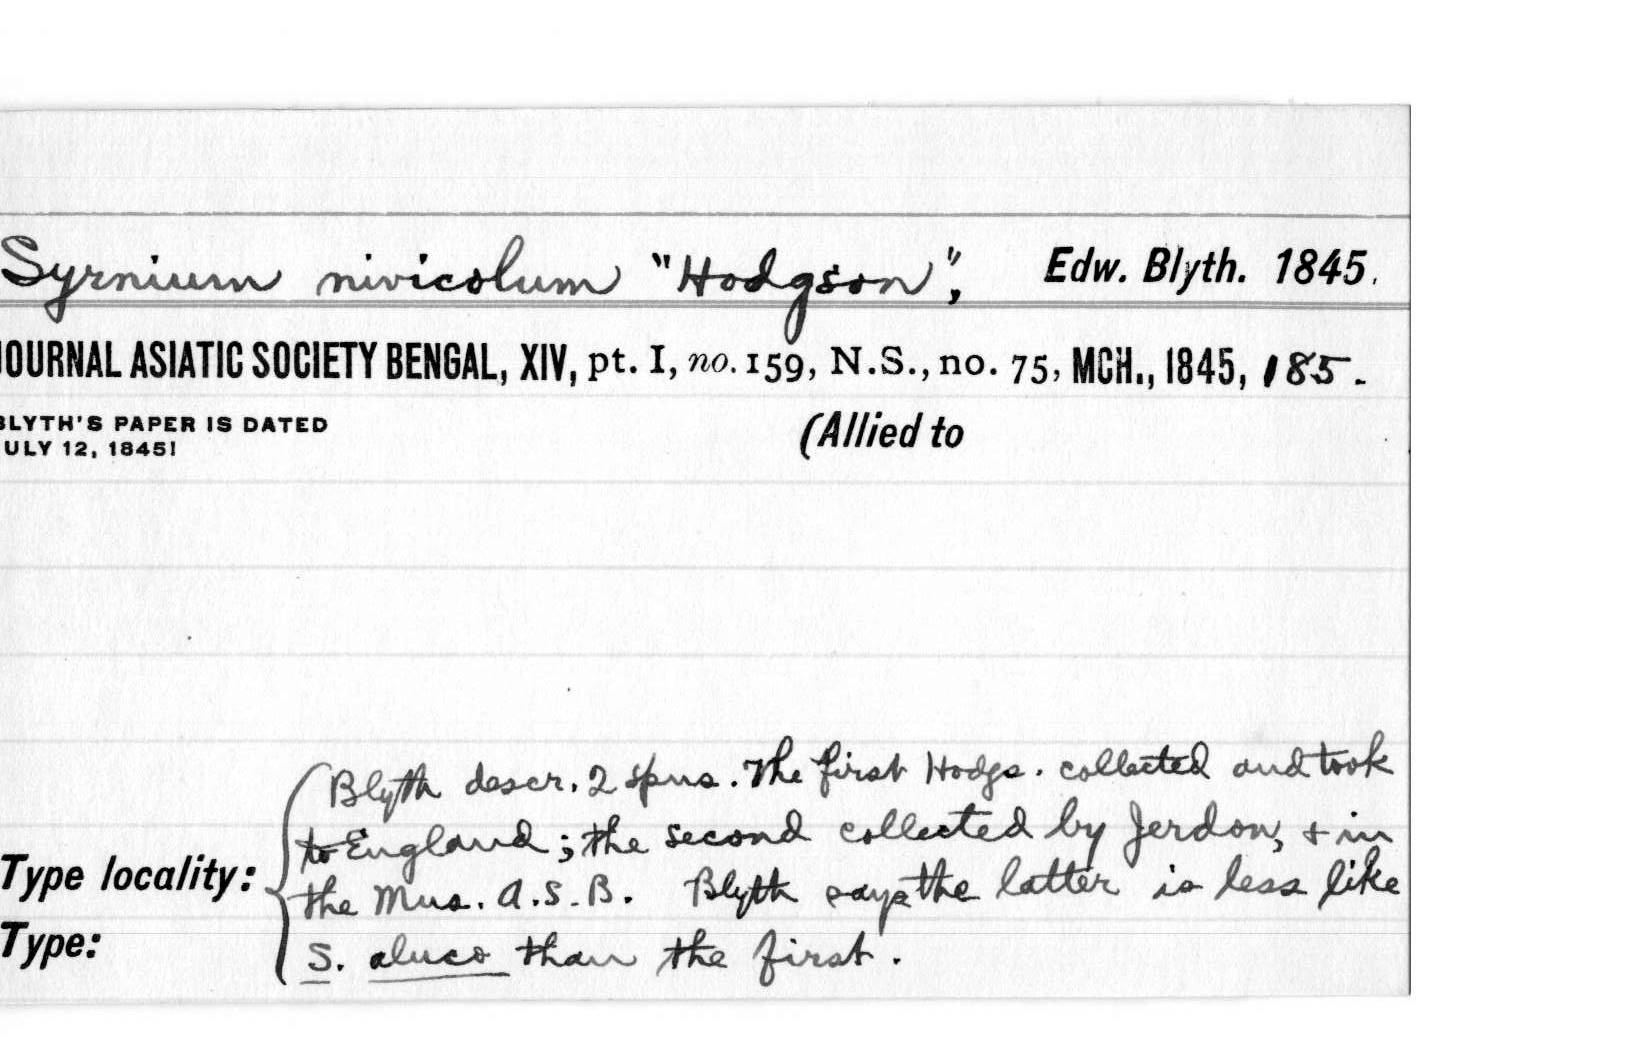 Syrnium nivicolum "Hodgson", Edw. Blyth. 1845.
JOURNAL ASIATIC SOCIETY BENGAL, XIV, pt. I, no. 159, N.S., no. 75, MCH., 1845, 185.
BLYTH'S PAPER IS DATED
ULY 12, 1845!
(Allied to
Blyth descr. 2 spns. The first Hodgs. collected and took
to England; the second collected by Jerdon, + in
Type locality: the Mus. A.S.B. Blyth says the latter is less like
Type: S. aluco than the first.